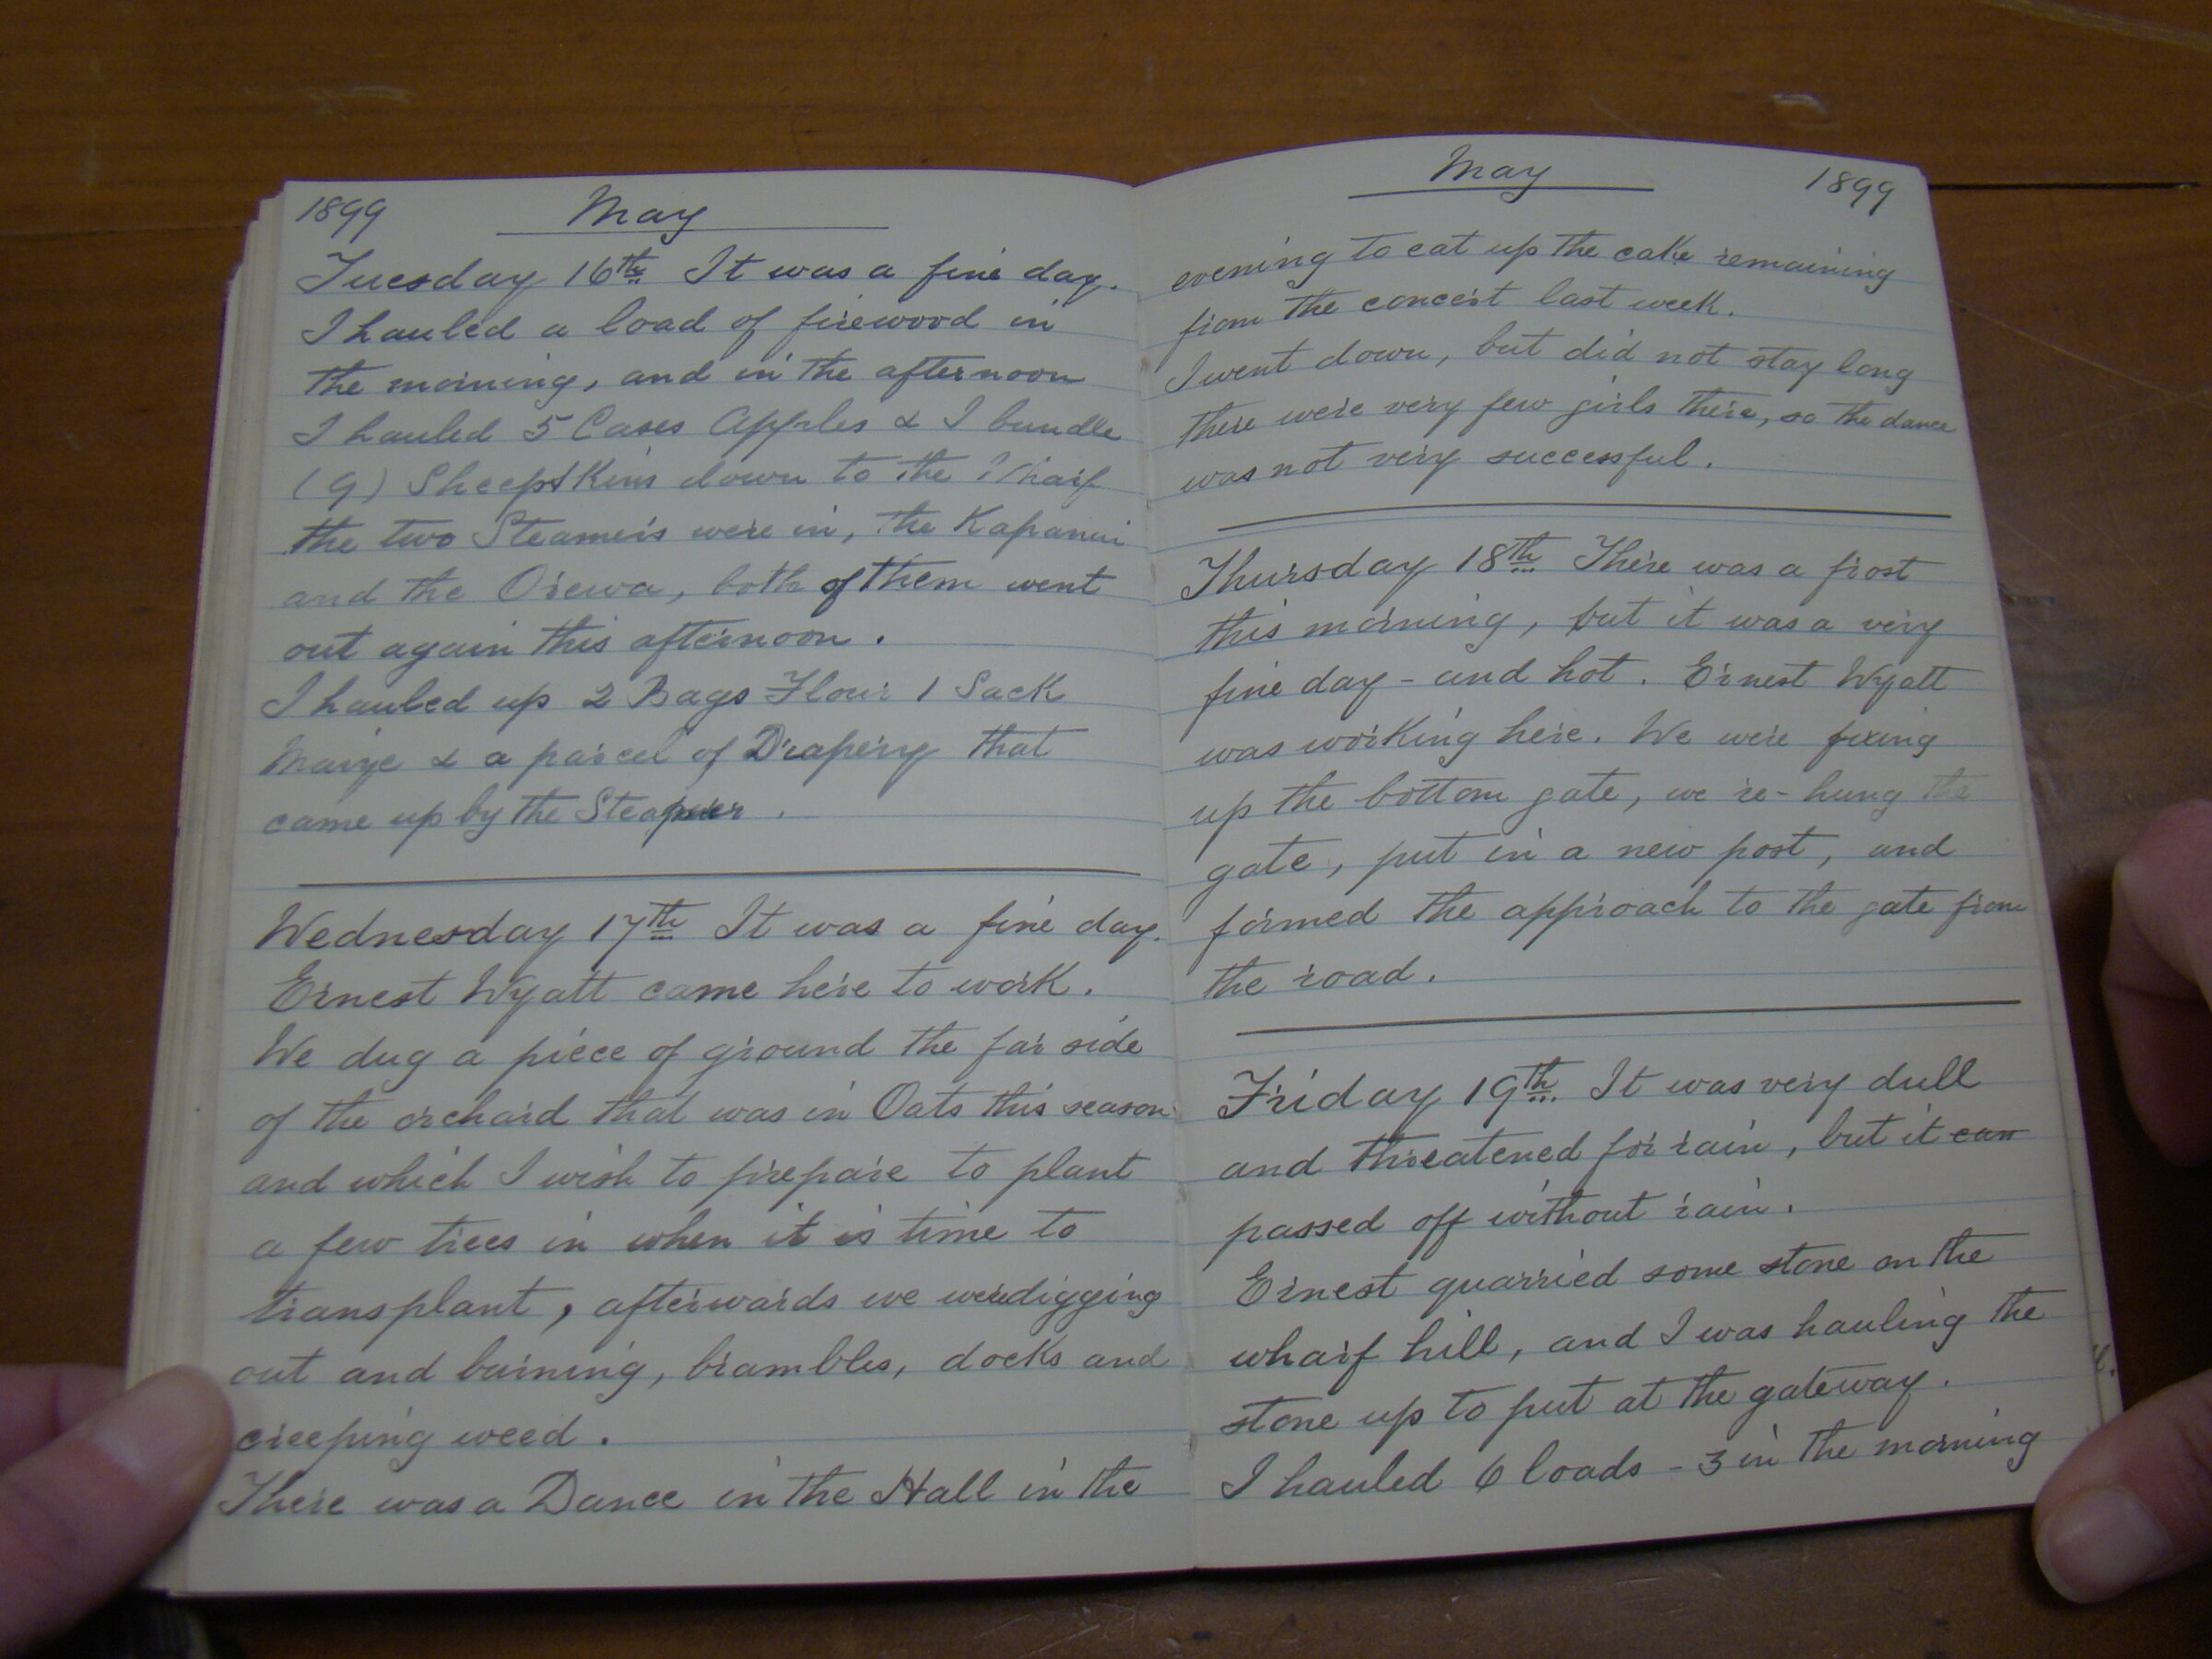 1899 May
Tuesday 16th It was a fine day.
I hauled a load of firewood in
the morning, and in the afternoon
I hauled 5 Cases Apples & 1 bundle
(9) SheepsKins down to the Wharf
the two Steamers were in, the Kapanui
and the Orewa, both of them went
out again this afternoon.
I hauled up 2 Bags Flour 1 Sack
Maize & a parcel of Drapery that
came up by the Steamer.
Wednesday 17th It was a fine day.
Ernest Wyatt came here to work.
We dug a piece of ground the far side
of the orchard that was in Oats this season
and which I wish to prepare to plant
a few trees in when it is time to
transplant, afterwards we were digging
out and burning, brambles, docks and
creeping weed.
There was a Dance in the Hall in the
May 1899
evening to eat up the cake remaining
from the concert last week.
I went down, but did not stay long
there were very few girls there, so the dance
was not very successful.
Thursday 18th There was a frost
this morning, but it was a very
fine day - and hot. Ernest Wyatt
was working here. We were fixing
up the bottom gate, we re-hung the
gate, put in a new post, and
formed the approach to the gate from
the road.
Friday 19th. It was very dull
and threatened for rain, but it can
passed off without rain.
Ernest quarried some stone on the
wharf hill, and I was hauling the
stone up to put at the gateway.
I hauled 6 loads - 3 in the morning